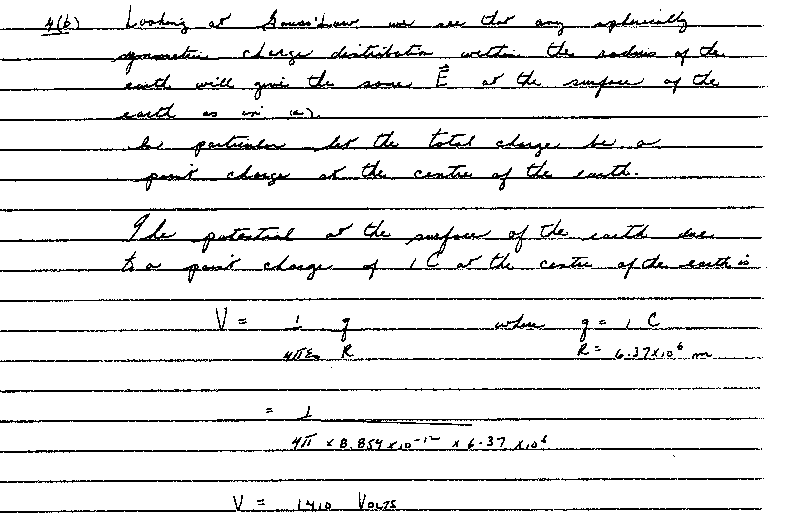 4(b) Looking at Gauss' Law we see that any spherically
symmetric charge distribution within the radius of the
earth will give the same E⃗ at the surface of the
earth as in (a).
In particular let the total charge be a
point charge at the centre of the earth.
The potential at the surface of the earth due
to a point charge of 1 C at the centre of the earth is
V = 1/4πε₀ q/R where q = 1 C
R = 6.37x10⁶ m
= 1
4π x 8.854 x 10⁻¹² x 6.37 x 10⁶
V = 1410 VOLTS